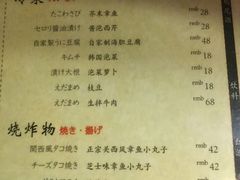 たこわさび 芥末章鱼 rmb 28
セロリ醤油漬け 酱泡西芹 rmb 28
自家製うに豆腐 自家制海胆豆腐 rmb
キムチ 韩国泡菜 rmb 18
漬け大根 泡菜萝卜 rmb 18
えだまめ 枝豆 rmb 18
えだまめ 生拌牛肉 rmb 68
烧炸物 焼き・揚げ
関西風ダコ焼き 正宗关西风章鱼小丸子 rmb 42
チーズダコ焼き 芝士味章鱼小丸子 rmb 42
rmb 48
饮料